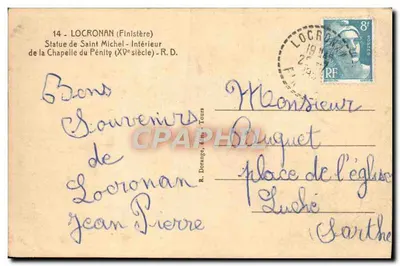 14 - LOCRONAN (Finistère)
Statue de Saint Michel - Intérieur
de la Chapelle du Pénity (XVe siècle) - R. D.
Bons
Souvenirs
de
Locronan
Jean Pierre
R. Dorange, Tours
CPARAMA
LOCRONAN
8F
RF
Monsieur
place de l'église
Luché
Sarthe